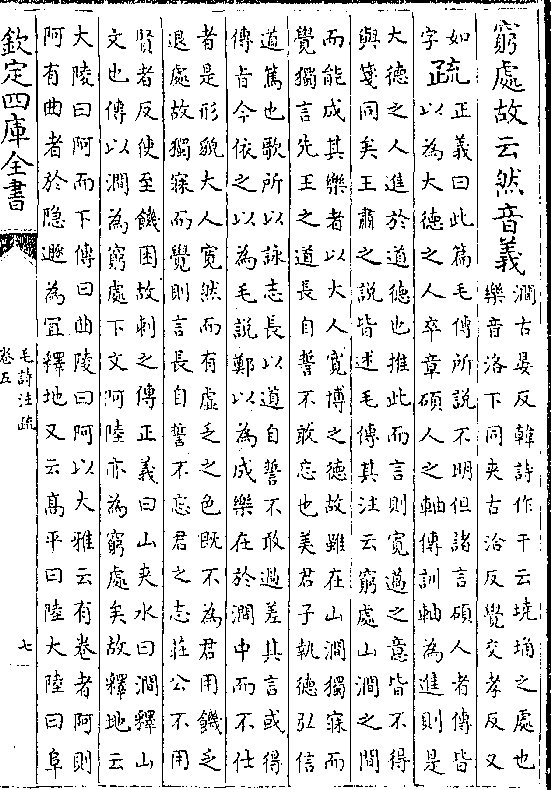 窮處故云然音義
澗古晏反韓詩作干云墝埆之處也
樂音洛下同夾古洽反覺交孝反又
如
字
疏
正義曰此篇毛傳所説不明但諸言碩人者傳皆
以為大德之人卒章碩人之軸傳訓軸為進則是
大德之人進於道德也推此而言則寛邁之意皆不得
與箋同矣王肅之説皆述毛傳其注云窮處山澗之間
而能成其樂者以大人寛博之德故雖在山澗獨寐而
覺獨言先王之道長自誓不敢忘也美君子執德弘信
道篤也歌所以詠志長以道自誓不敢過差其言或得
傳旨今依之以為毛説鄭以為成樂在於澗中而不仕
者是形貌大人寛然而有虛乏之色既不為君用饑乏
退處故獨寐而覺則言長自誓不忘君之志莊公不用
賢者反使至饑困故刺之傳正義曰山夾水曰澗釋山
文也傳以澗為窮處下文阿陸亦為窮處矣故釋地云
大陵曰阿而下傳曰曲陵曰阿以大雅云有卷者阿則
阿有曲者於隐遯為宜釋地又云髙平曰陸大陸曰阜
欽定四庫全書
毛詩注疏
卷五
七